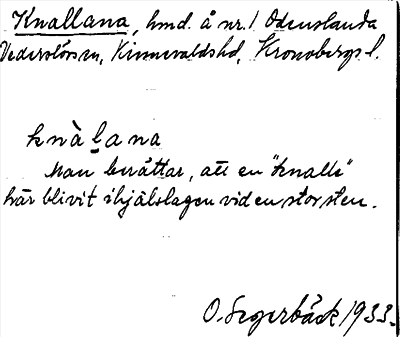 Knallana, hmd. å nr. 1 Odenslanda
Vederslövs sn, Kinnevaldshd, Kronobergs l.
knàlana
Man berättar, att en "knalle"
här blivit ihjälslagen vid en stor sten.
O. Segerbäck 1933.